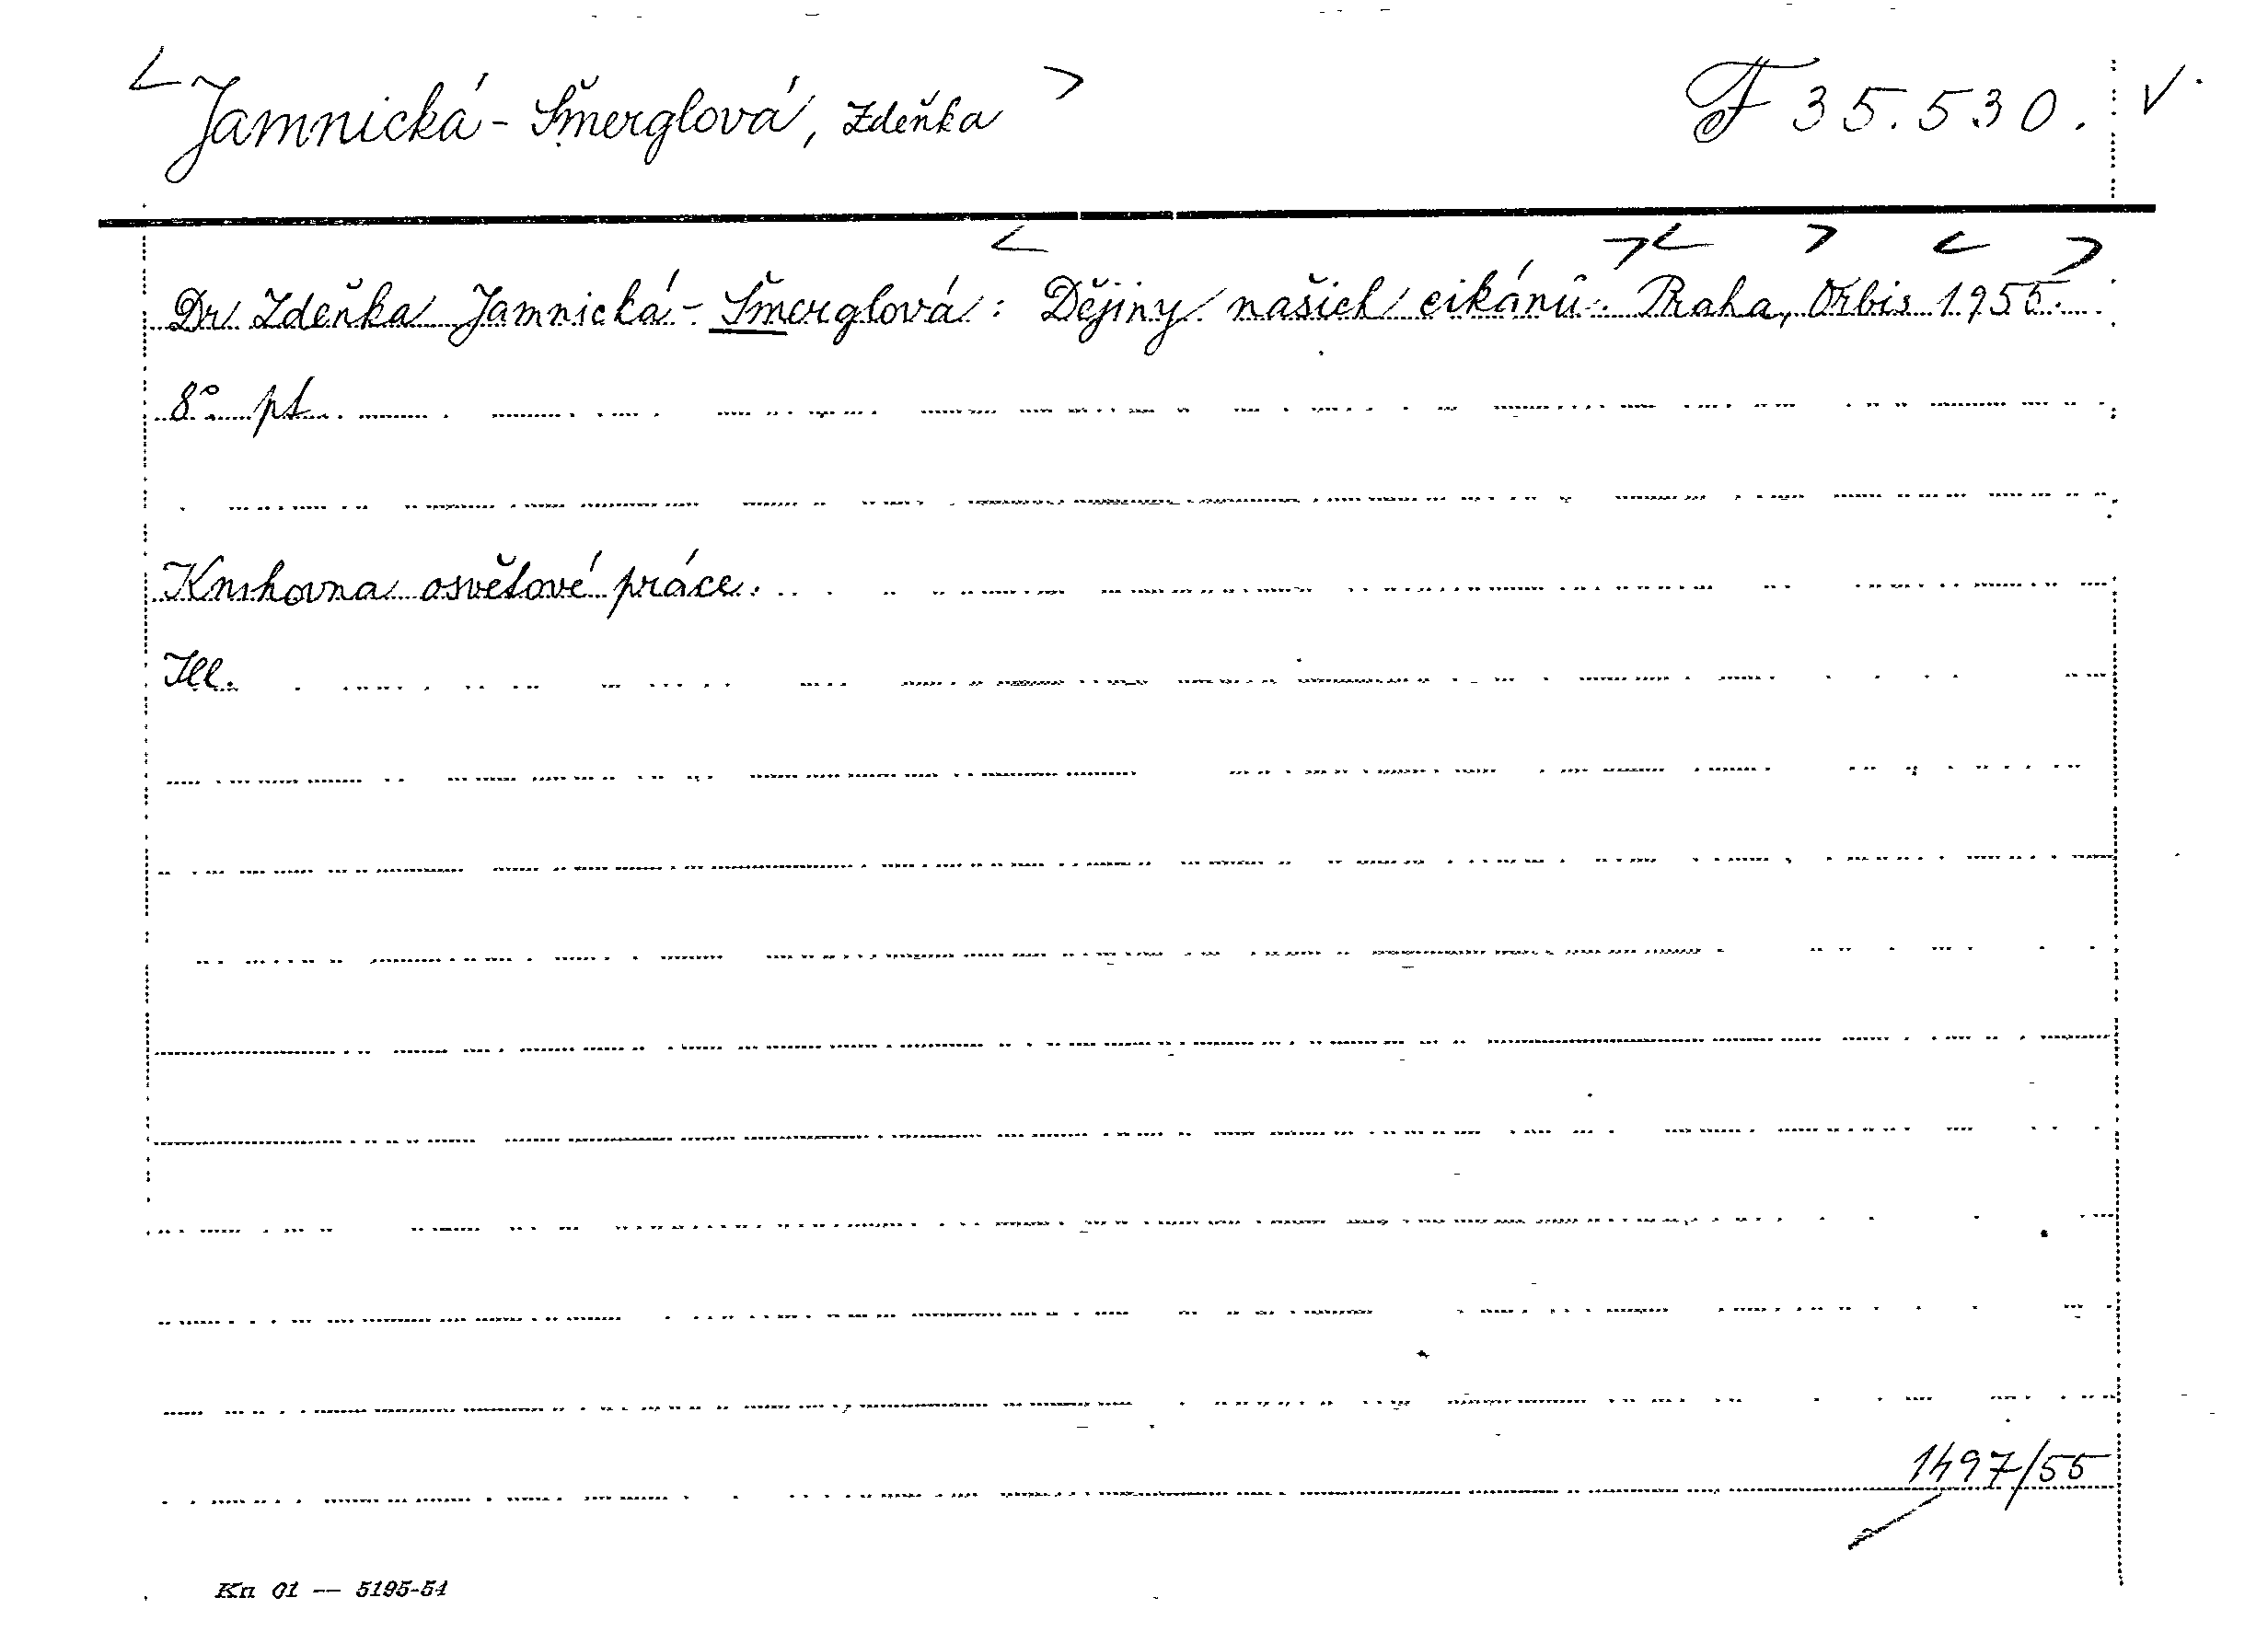 < Jamnická - Šmerglová, Zdeňka > F 35.530. V.
Dr Zdeňka Jamnická - Šmerglová : Dějiny našich cikánů. Praha, Orbis 1955.
8°. pt.
Knihovna osvětové práce.
Ill.
1497/55
Kn 01 — 5195-54